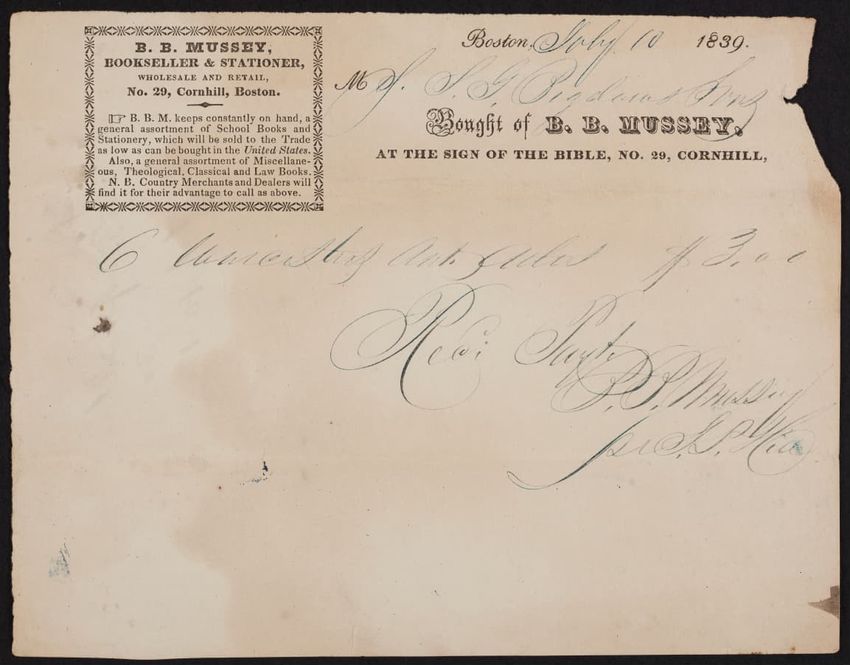 B. B. MUSSEY,
BOOKSELLER & STATIONER,
WHOLESALE AND RETAIL,
No. 29, Cornhill, Boston.
☞ B. B. M. keeps constantly on hand, a
general assortment of School Books and
Stationery, which will be sold to the Trade
as low as can be bought in the United States.
Also, a general assortment of Miscellane-
ous, Theological, Classical and Law Books.
N. B. Country Merchants and Dealers will
find it for their advantage to call as above.
Boston, July 10 1839.
M
Bought of B. B. MUSSEY,
AT THE SIGN OF THE BIBLE, NO. 29, CORNHILL,
6 $3.00
Recd Payt
B. B. Mussey